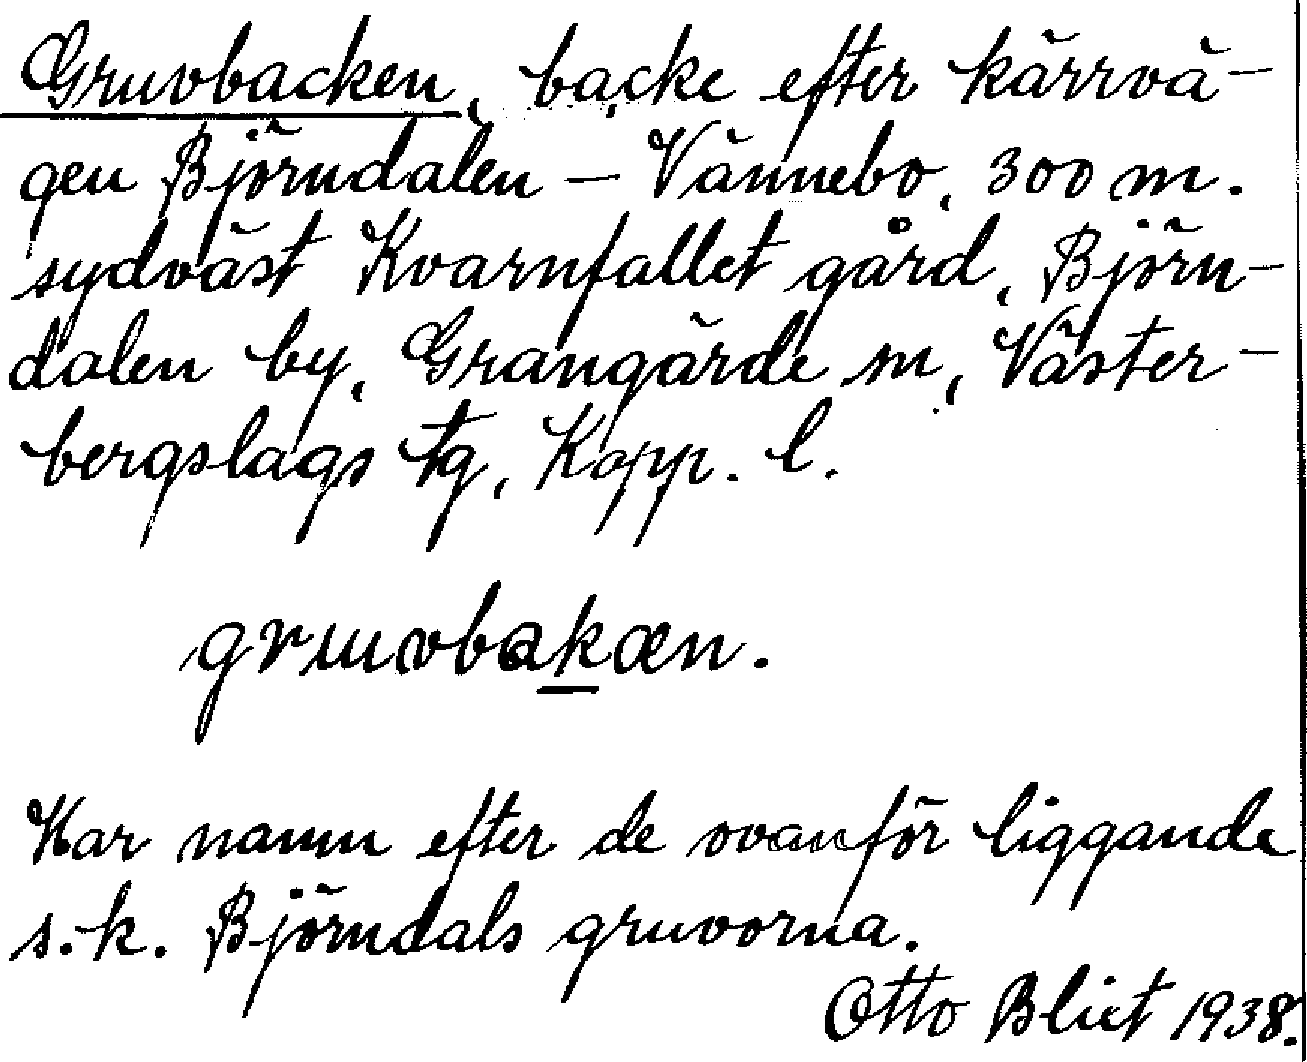 Gruvbacken, backe efter kärrvä-
gen Björndalen – Vännebo, 300 m.
sydväst Kvarnfallet gård, Björn-
dalen by, Grangärde sn, Väster-
bergslags tg, Kopp. l.
gruuvbakæn.
Har namn efter de ovanför liggande
s.k. Björndals gruvorna.
Otto Blixt 1938.